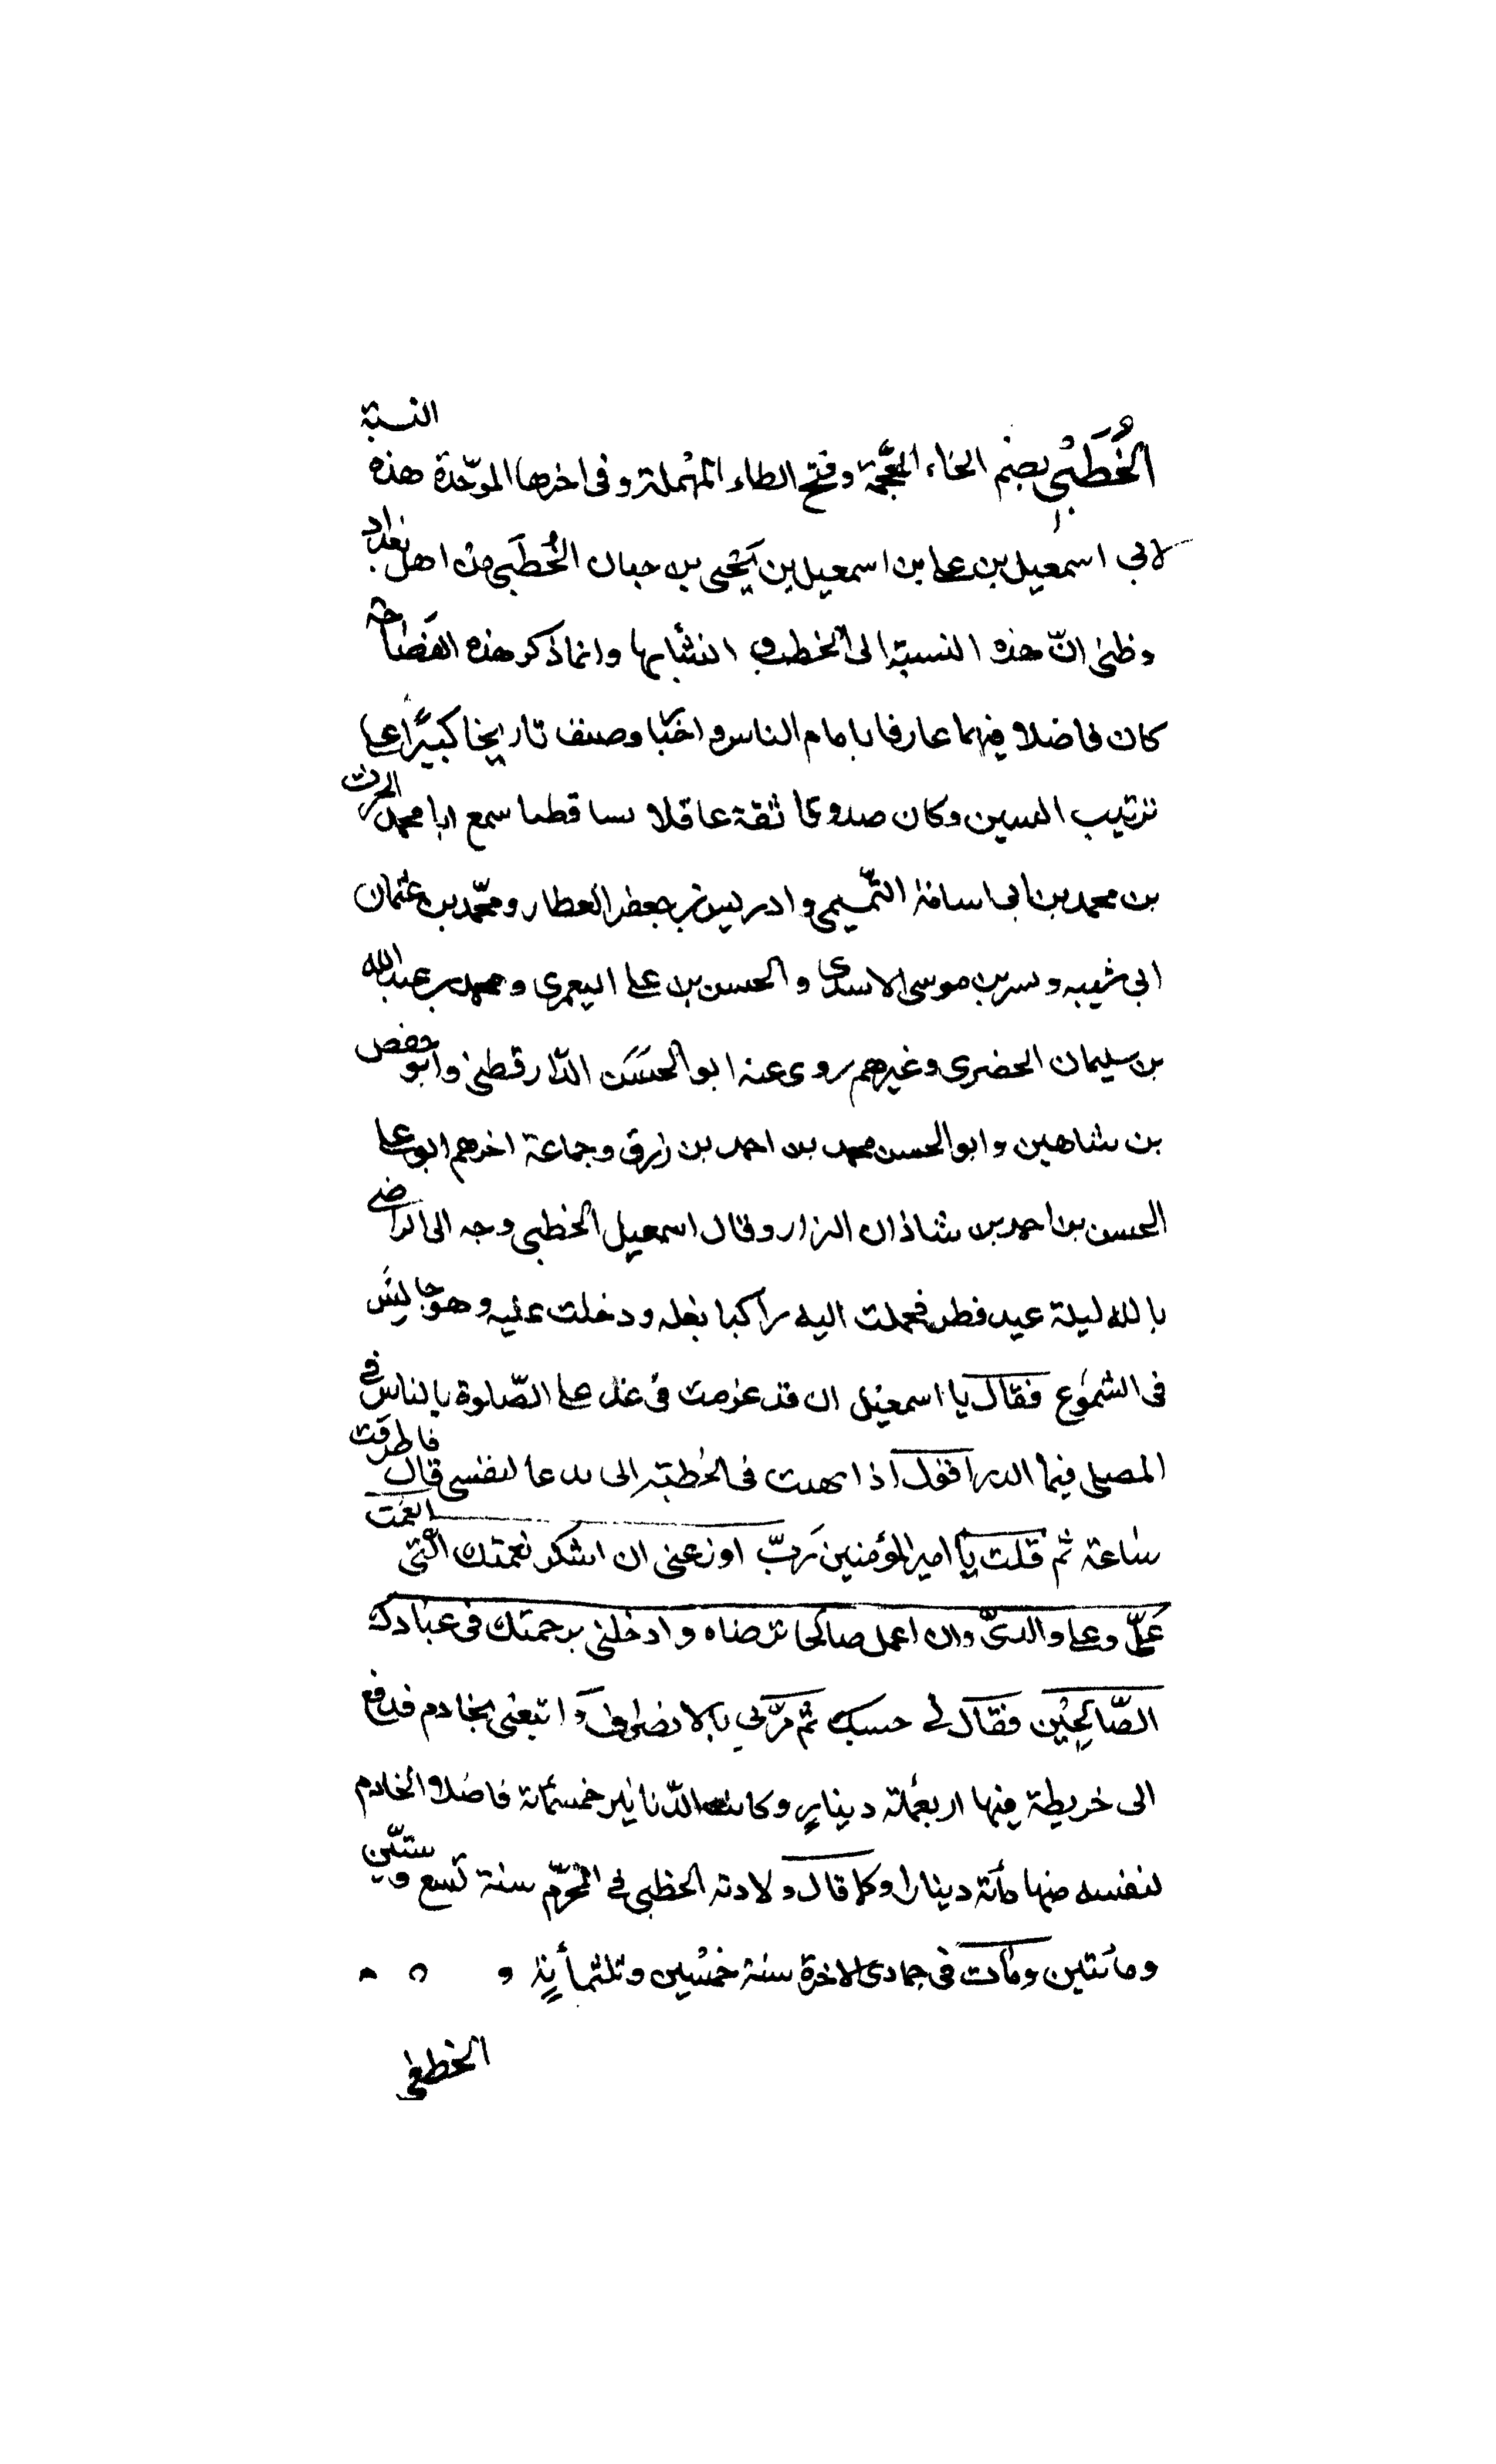 الخُطَبْي بضم الخاء المعجمة وفتح الطاء المهملة وفى اخرها الموحّدة هذه النسبة
لابي اسمعيل بن على بن اسمعيل بن يحيى بن حبان الخُطَبى من اهل بغداد
وظنى انّ هذه النسبة الى الخطب و انشأيها وانما ذكر هذه الفصاحته
كان فاضلا فهما عارفا بايام الناس و اخبا وصنف تاريخا كبيرًا على
ترتيب السنين وكان صدوقا ثقة عاقلا سمع ابا محمد الحرث
بن محمد بن ابى اسامة التّميمى و ادريس بن جعفر العطار ومحّمد بن عثمان
ابى شيبه و بن موسى الاسدى و الحسن بن على اليعمرى ومحمد بن عبد الله
بن سليمان الحضرمي وغيرهم روى عنه ابو الحسَن الدّارقطنى وابو حفص
بن شاهين وابو الحسن محمد بن احمد بن زرق وجماعة اخرهم ابو على
الحسن بن احمد بن شاذان البزار وقال اسمعيل الخطبى وجه الى الراضى
بالله ليلة عيد فطر فحملت اليه راكبا بغله ودخلت عليه وهو جالس
فى الشموع فقال يا اسمعيل ان قد عزمت فى غد على الصّلوة بالناس فى
المصلى فيما الذى اقول اذا انتهيت فى الخطبة الى الدعا لنفسى قال فاطرقت
ساعة ثم قلت يا امير المؤمنين رَبّ اوزعنى ان اشكر نعمتك الّتى انعمت
عَلىّ وعلى والدىّ وان اعمل صالحا ترضاه وادخلنى برحمتك فى عبادك
الصّالحين فقال لى حسبك ثم مرّ لى بالانصراف و اتبعنى بخادم فدفع
الى خريطة فيها اربعمائة دينار وكانت الدّنانير خمسمائة فاخذ الخادم
لنفسه منها مائة دينارا وكما قال ولادته الخطبى فى المحرّم سنة تسع وستّين
ومائتين ومات فى جمادى الاخرة سنة خمسين وثلثمأية و ه
الخطفى